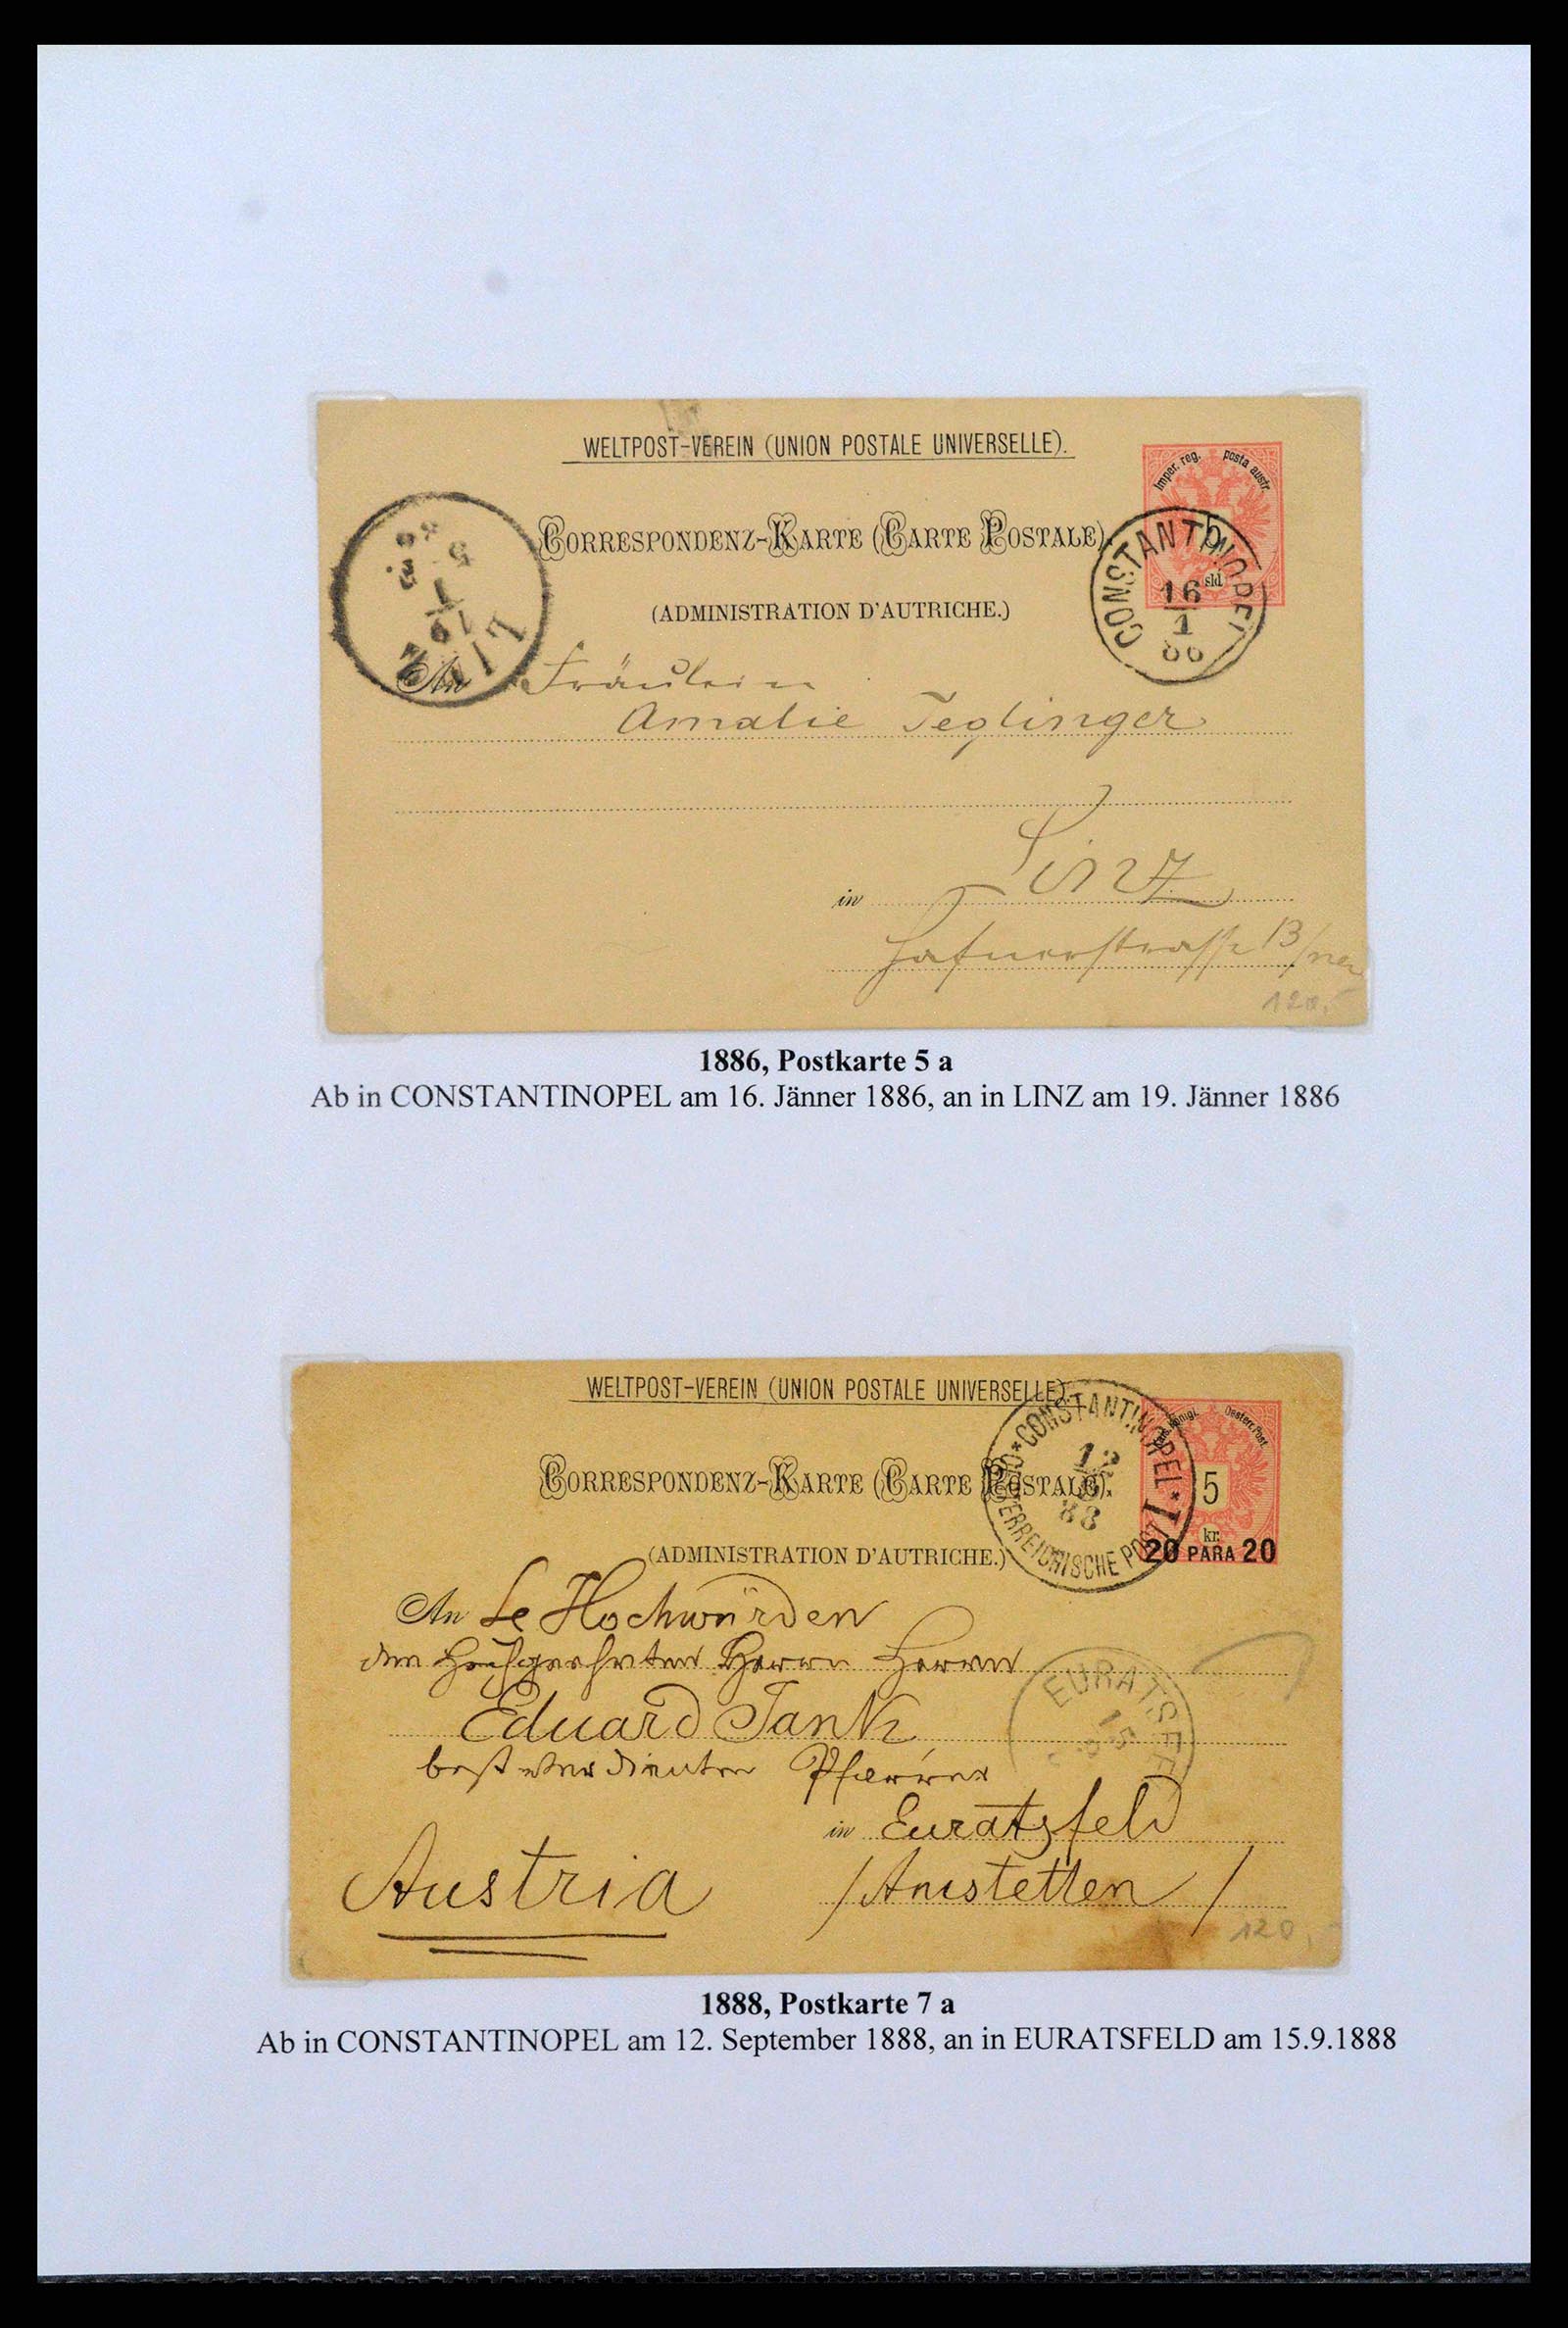 WELTPOST-VEREIN (UNION POSTALE UNIVERSELLE).
Imper. reg. posta austr.
CORRESPONDENZ-KARTE (CARTE POSTALE).
5 sld
CONSTANTINOPEL
16
1
86
(ADMINISTRATION D'AUTRICHE.)
LINZ
An Fräulein
Amalie Teglinger
in Linz
Hafnerstrasse 13/neu
120,-
1886, Postkarte 5 a
Ab in CONSTANTINOPEL am 16. Jänner 1886, an in LINZ am 19. Jänner 1886
WELTPOST-VEREIN (UNION POSTALE UNIVERSELLE).
Kais. Königl. Oesterr. Post
CONSTANTINOPEL I
12
88
OESTERREICHISCHE POST
CORRESPONDENZ-KARTE (CARTE POSTALE).
5 kr.
20 PARA 20
(ADMINISTRATION D'AUTRICHE.)
An Se Hochwürden
dem Hochgeehrten Herrn Herrn
EURATSF
15
Eduard Tank
best verdienter Pfarrer
in Euratzfeld
Austria /Amstetten/
120,
1888, Postkarte 7 a
Ab in CONSTANTINOPEL am 12. September 1888, an in EURATSFELD am 15.9.1888